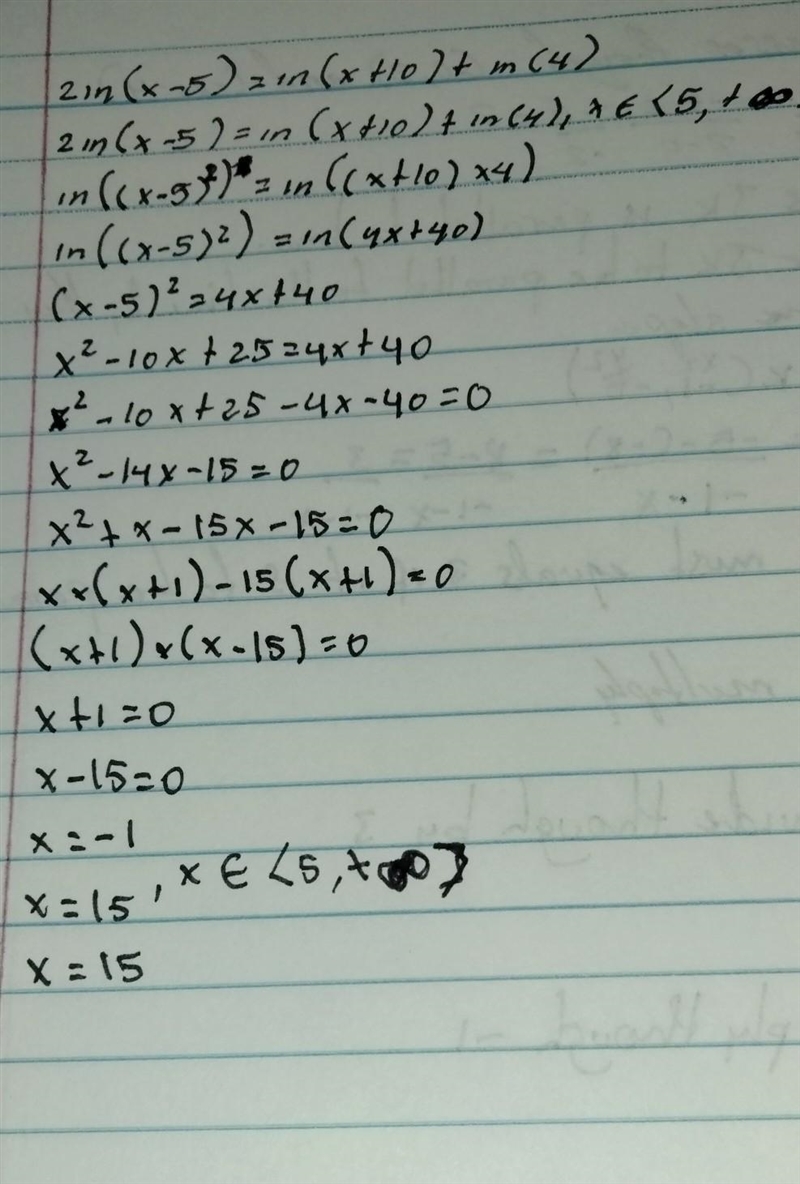 2ln(x-5)=ln(x+10)+ln(4)
2ln(x-5)=ln(x+10)+ln(4), x∈⟨5,+∞
ln((x-5)²)=ln((x+10)×4)
ln((x-5)²)=ln(4x+40)
(x-5)²=4x+40
x²-10x+25=4x+40
x²-10x+25-4x-40=0
x²-14x-15=0
x²+x-15x-15=0
x×(x+1)-15(x+1)=0
(x+1)×(x-15)=0
x+1=0
x-15=0
x=-1
x=15, x∈⟨5,+∞⟩
x=15